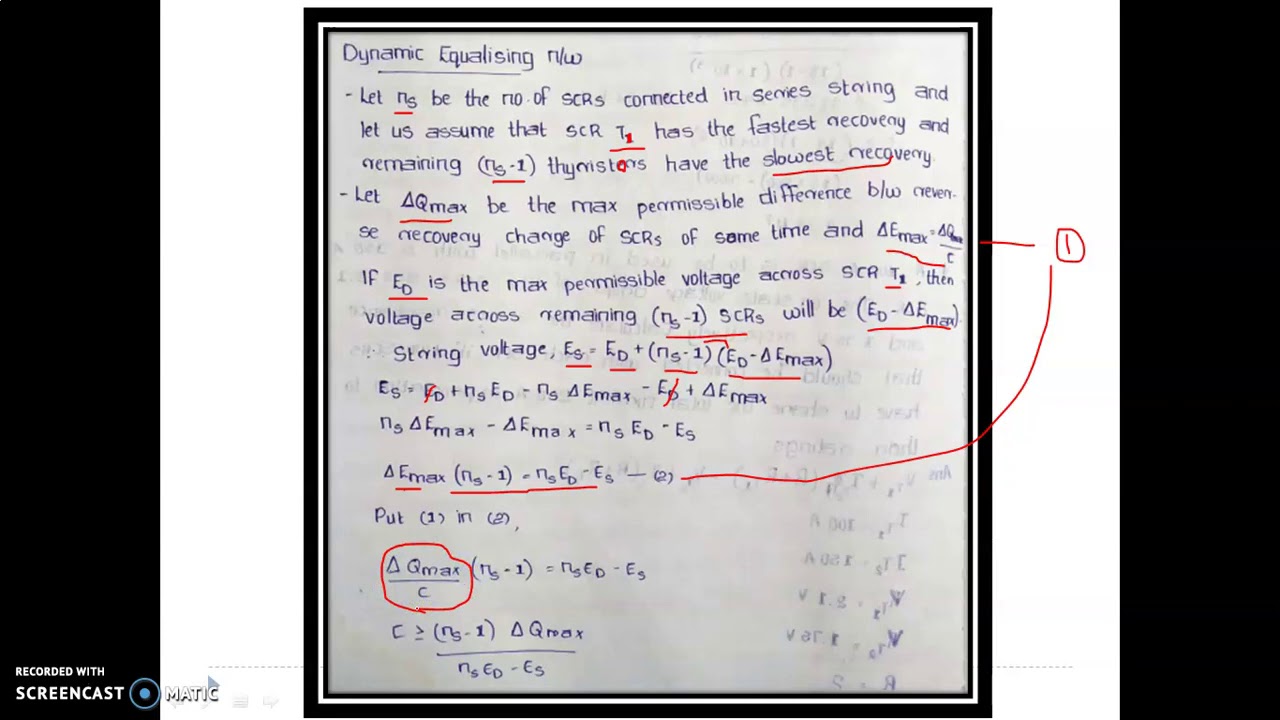 Dynamic Equalising n/w
- Let ns be the no. of SCRs connected in series string and
let us assume that SCR T1 has the fastest recovery and
remaining (ns-1) thyristors have the slowest recovery.
- Let ΔQmax be the max permissible difference b/w rever-
se recovery charge of SCRs of same time and ΔEmax = ΔQmax/C
1
If ED is the max permissible voltage across SCR T1, then
voltage across remaining (ns-1) SCRs will be (ED - ΔEmax).
∴ String voltage, Es = ED + (ns-1) (ED - ΔEmax)
Es = ED + nsED - ns ΔEmax - ED + ΔEmax
ns ΔEmax - ΔEmax = ns ED - Es
ΔEmax (ns-1) = nsED - Es — (2)
Put (1) in (2),
ΔQmax/C (ns-1) = nsED - Es
C ≥ (ns-1) ΔQmax
nsED - Es
RECORDED WITH
SCREENCAST MATIC